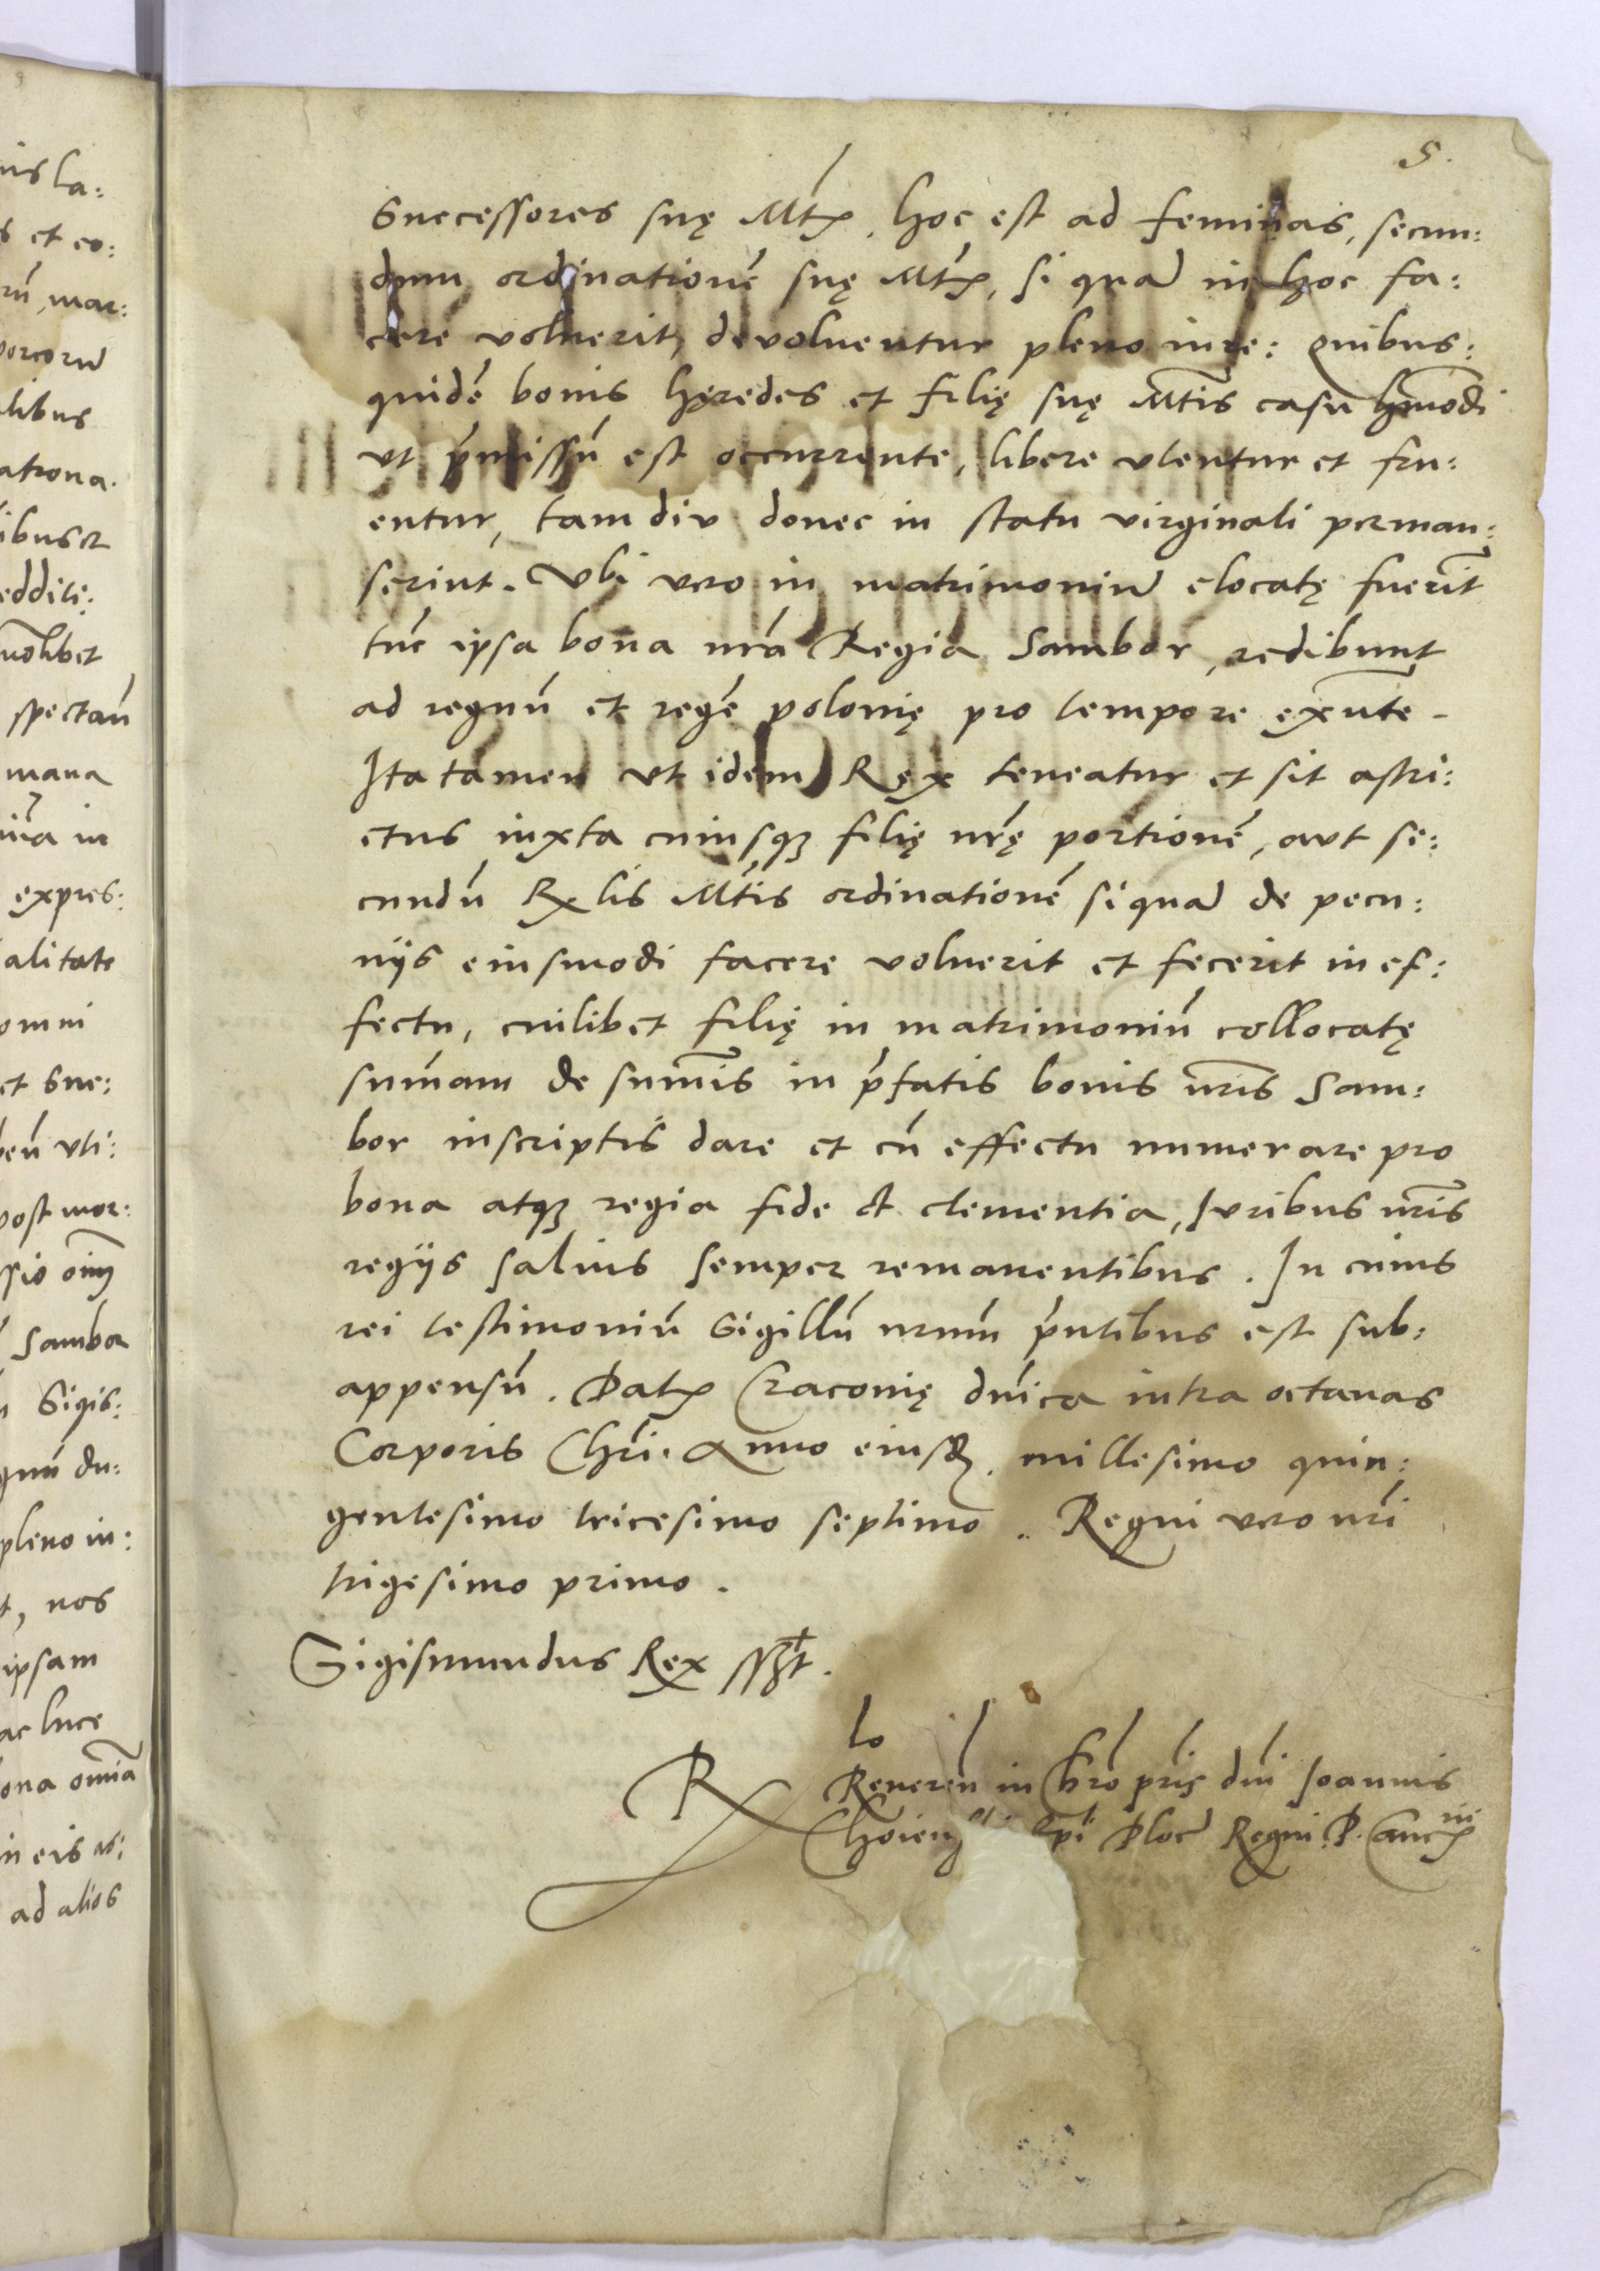 5.
Successores suę Mtis, hoc est ad feminas, secun:
dum ordinationē suę Mtis, si quam in hoc fa:
cere voluerit, devoluentur pleno iure: Quibus:
quidē bonis hęredes et filię suę Mtis casu hmōdi
vt p̄missū est occurrente, libere vtentur et fru:
entur, tam div donec in statu virginali perman:
serint. Vbi vero in matrimoniū elocatę fuerīt
tūc ipsa bona nrā Regia Sambor, redibunt
ad regnū et regē polonię pro tempore exn̄tē.
Ita tamen vt idem Rex teneatur et sit astri:
ctus iuxta cuiusqꝫ filię nrę portionē, avt se:
cundū Rx lis Mtis ordinationē si quam de pecu:
nijs eiusmodi facere voluerit et fecerit in ef:
fectu, cuilibet filię in matrimoniū collocatę
sūmam de sūmis in p̄fatis bonis nr̄is Sam:
bor inscriptis dare et cū effectu numerare pro
bona atqꝫ regia fide et clementia, Iuribus nr̄is
regijs salvis semper remanentibus. In cuius
rei testimoniū Sigillū nrūm p̄ntibus est sub:
appensū. Datꝫ Cracovię dn̄ica intra octauas
Corporis Chri. Anno eiusdꝫ millesimo quin:
gentesimo tricesimo septimo. Regni vero nri
trigesimo primo.
Sigismundus Rex sszt.
Rlo
Reueren in Chro pris dni Ioannis
Choien Epi Ploc Regni P. Cancrii
us la:
s et eo:
rū, mar:
porcorū
libus
atrona.
ibus et
edditi:
uolibet
spectan̄
mana
in
expres:
alitate
omni
et Sue:
ben̄ vti:
post mor:
ssio
Sambor
Sigis:
gnū du:
pleno iu:
t, nos
ipsam
ac luce
ona om̄ia
in eis
ad alios